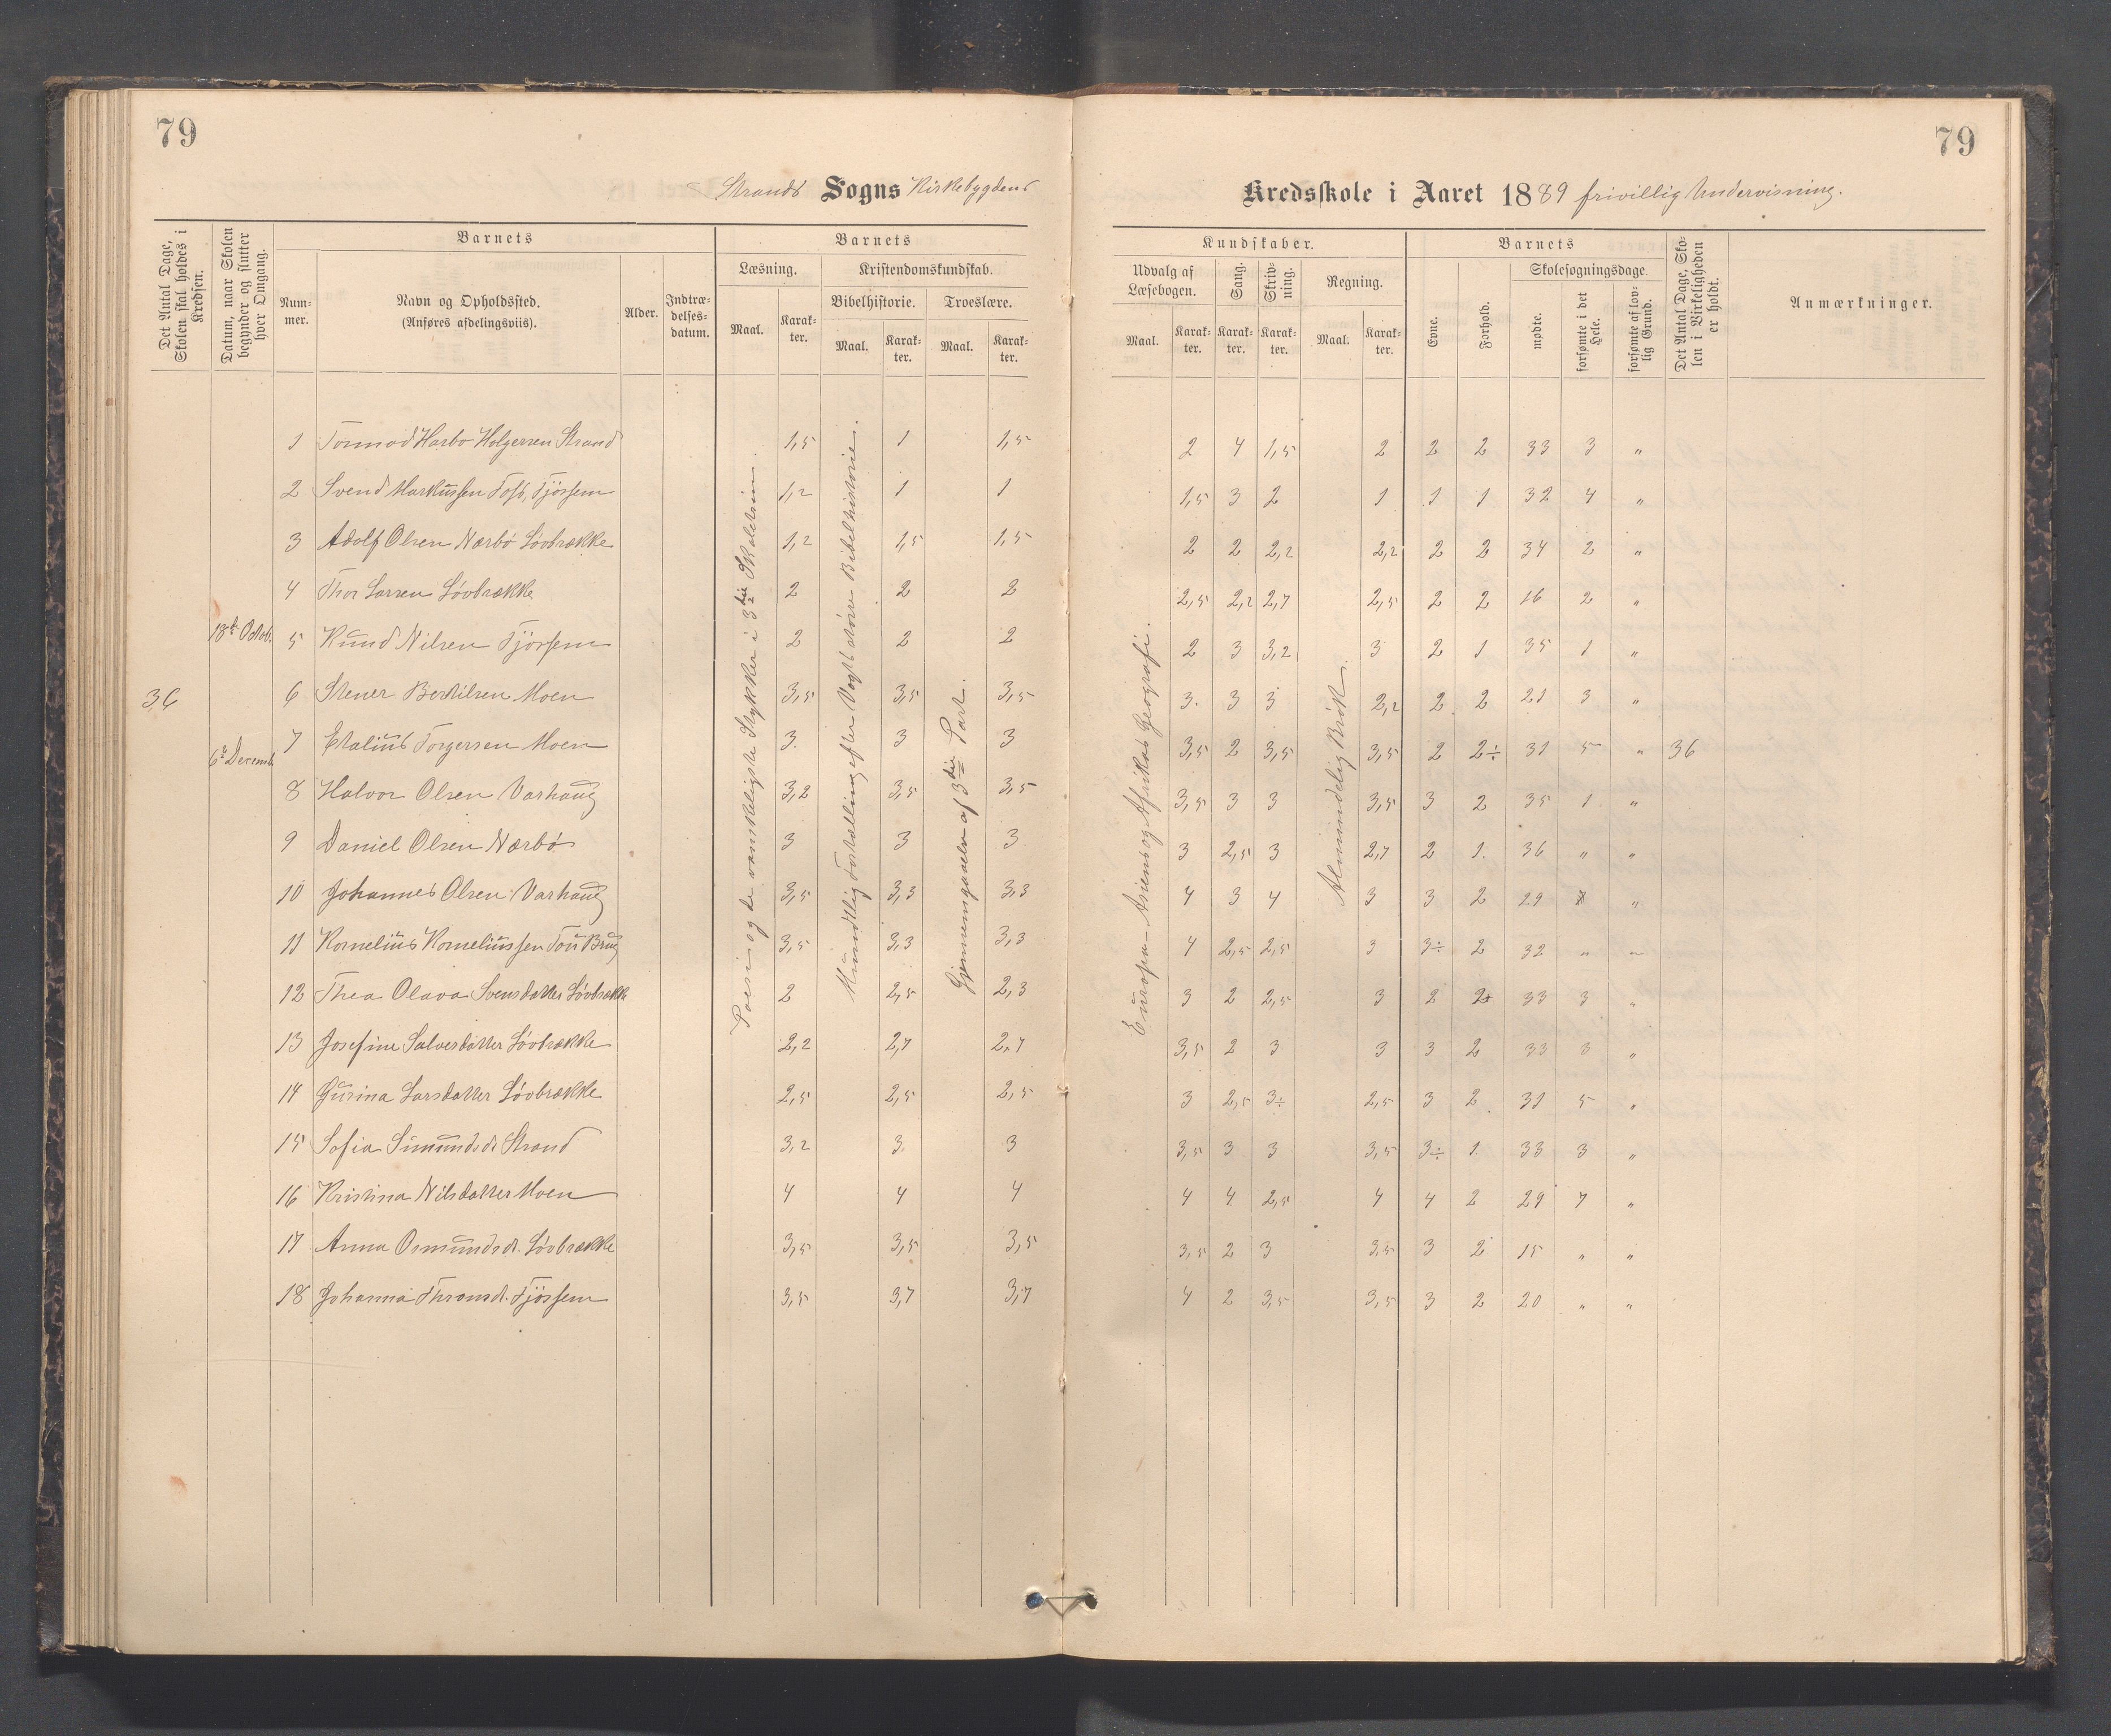 79
79
Strands Sogns Kirkebygdens Kredsskole i Aaret 1889 frivillig Undervisning.
Det Antal Dage, Skolen skal holdes i Kredsen.
Datum, naar Skolen begynder og slutter hver Omgang.
Barnets
Num-mer.
Navn og Opholdssted.
(Anføres afdelingsviis).
Alder.
Indtræ-delses-datum.
Barnets
Læsning.
Maal.
Karak-ter.
Kristendomskundskab.
Bibelhistorie.
Maal.
Karak-ter.
Troeslære.
Maal.
Karak-ter.
Kundskaber.
Udvalg af Læsebogen.
Maal.
Karak-ter.
Sang.
Karak-ter.
Skriv-ning.
Karak-ter.
Regning.
Maal.
Karak-ter.
Barnets
Evne.
Forhold.
Skolesøgningsdage.
mødte.
forsømte i det Hele.
forsømte af lov-lig Grund.
Det Antal Dage, Sko-len i Virkeligheden er holdt.
Anmærkninger.
36
18de Octob.
6te Decemb.
Poesi og de vanskeligste Stykker i 3die Skoletrin.
Mundtlig Fortælling efter Vogts større Bibelhistorie.
Gjennemgaaelse af 3die Part.
Europa - Asiens og Afrikas Geografi.
Almindelig Brøk.
36
1 Tormod Harbo Holgersen Strand 1,5 1 1,5 2 4 1,5 2 2 2 33 3 "
2 Svend Markussen Tost, Tjössem 1,2 1 1 1,5 3 2 1 1 1 32 4 "
3 Adolf Olsen Nærbö Lövbrække 1,2 1,5 1,5 2 2 2,2 2,2 2 2 34 2 "
4 Thor Larsen Lövbrække 2 2 2 2,5 2,2 2,7 2,5 2 2 16 2 "
5 Knud Nilsen Tjössem 2 2 2 2 3 3,2 3 2 1 35 1 "
6 Stener Bertilsen Moen 3,5 3,5 3,5 3. 3 3 2,2 2 2 21 3 "
7 Etalius Torgersen Moen 3. 3 3 3,5 2 3,5 3,5 2 2÷ 31 5 "
8 Halvor Olsen Varhaug 3,2 3,5 3,5 3,5 3 3 3,5 3 2 35 1 "
9 Daniel Olsen Nærbö 3 3 3 3 2,5 3 2,7 2 1. 36 " "
10 Johannes Olsen Varhaug 3,5 3,3 3,3 4 3 4 3 3 2 29 "
11 Kornelius Korneliussen Tou Brug 3,5 3,3 3,3 4 2,5 2,5 3 3÷ 2 32 " "
12 Thea Olava Svensdatter Lövbrække 2 2,5 2,3 3 2 2,5 3 2 2 33 3 "
13 Josefine Salvesdatter Lövbrække 2,2 2,7 2,7 3,5 2 3 3 3 2 33 3 "
14 Gurina Larsdatter Lövbrække 2,5 2,5 2,5 3 2,5 3÷ 2,5 3 2 31 5 "
15 Sofia Simundsd. Strand 3,2 3. 3 3,5 3 3 3,5 3÷ 1. 33 3 "
16 Kristina Nilsdatter Moen 4 4 4 4 4 2,5 4 4 2 29 7 "
17 Anna Osmundsd. Lövbrække 3,5 3,5 3,5 3,5 2 3 3,5 3 2 15 " "
18 Johanna Thransd. Tjössem 3,5 3,7 3,7 4 2 3,5 3,5 3 2 20 " "